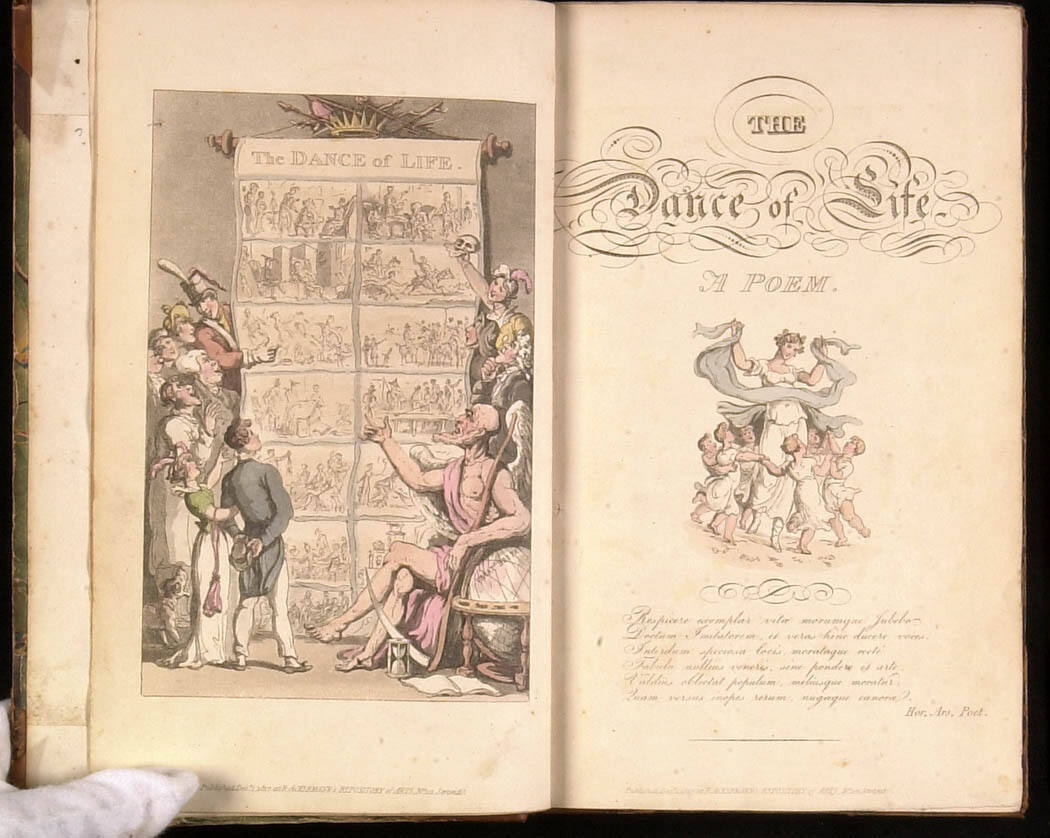 The DANCE of LIFE.
Published Dec.r 1, 1817, at R. ACKERMANN's REPOSITORY of ARTS, No. 101 Strand.
THE
Dance of Life.
A POEM.
Respicere exemplar vitæ morumque Jubebo
Doctum Imitatorem, et veras hinc ducere voces.
Interdum speciosa locis, morataque rectè
Fabula nullius veneris, sine pondere et arte,
Valdius oblectat populum, meliusque moratur,
Quam versus inopes rerum, nugæque canoræ.
Hor. Ars. Poet.
Published at R. ACKERMANN's REPOSITORY of ARTS, Strand